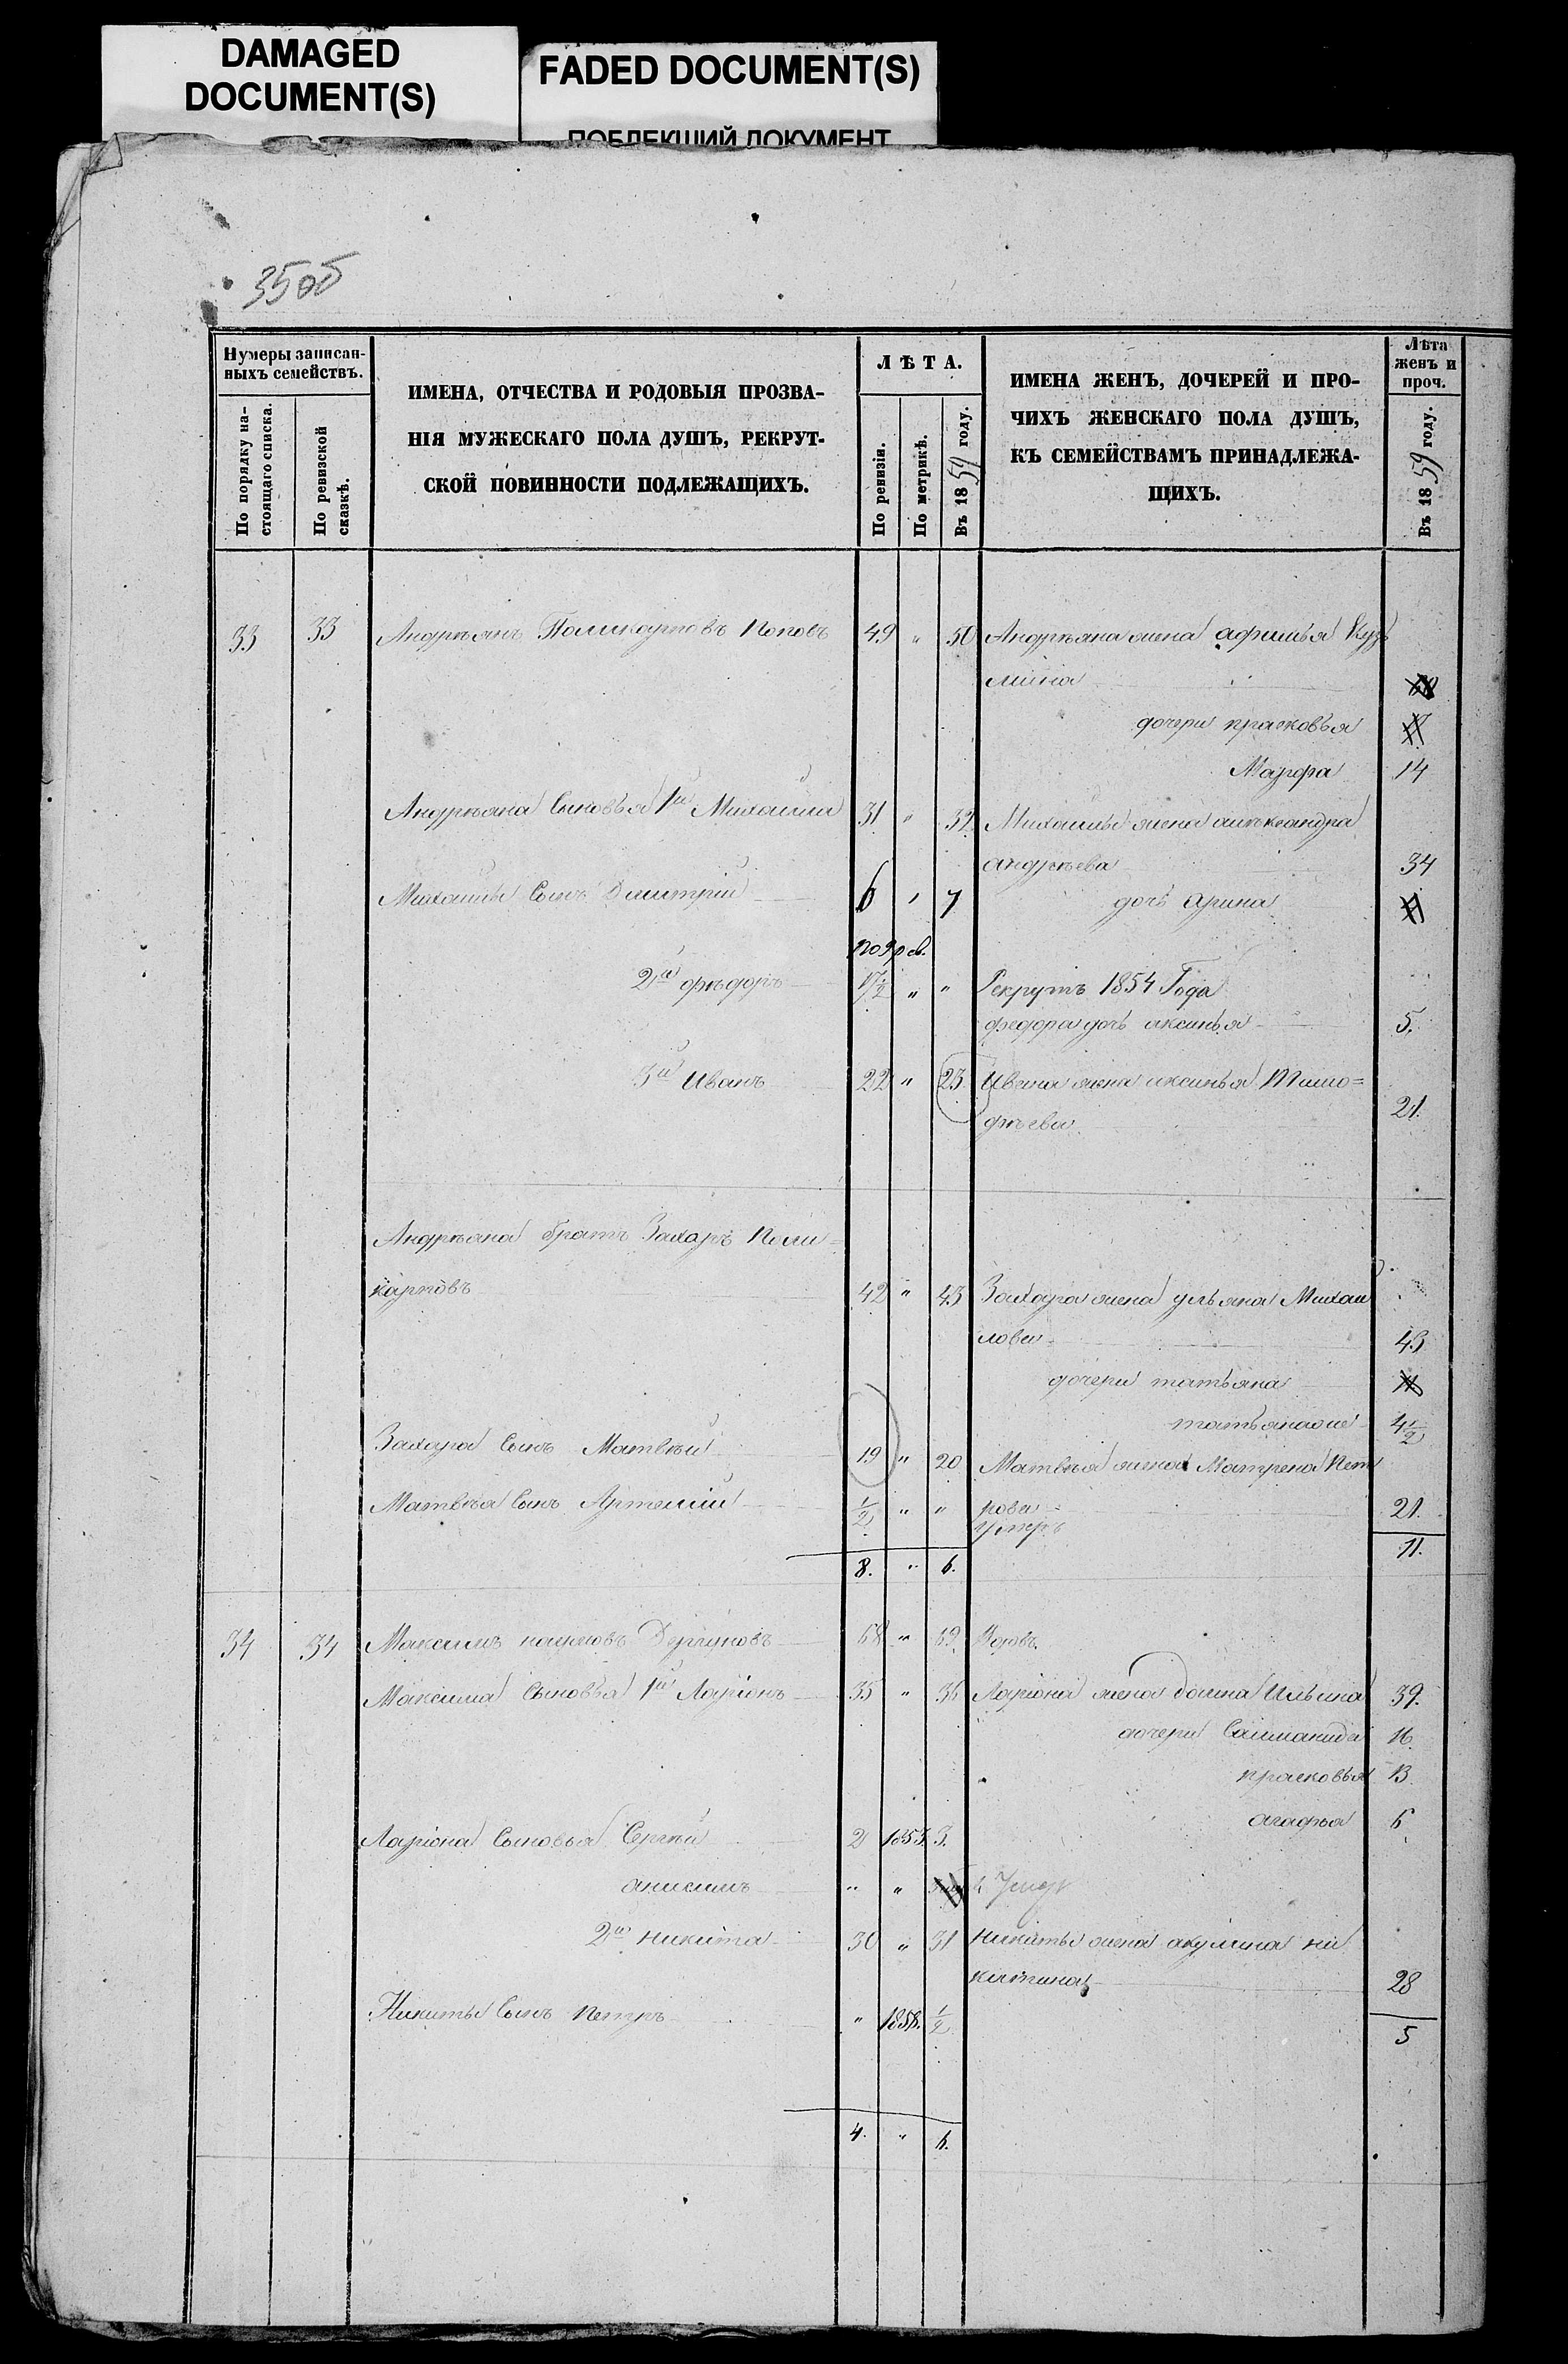 DAMAGED
DOCUMENT(S)
FADED DOCUMENT(S)
ПОБЛЕКШИЙ ДОКУМЕНТ
35 об
Нумеры записан-
ныхъ семействъ.
По порядку на-
стоящаго списка.
По ревизской
сказкѣ.
ИМЕНА, ОТЧЕСТВА И РОДОВЫЯ ПРОЗВА-
НІЯ МУЖЕСКАГО ПОЛА ДУШЪ, РЕКРУТ-
СКОЙ ПОВИННОСТИ ПОДЛЕЖАЩИХЪ.
ЛѢТА.
По ревизіи.
По метрикѣ.
Въ 1859 году.
ИМЕНА ЖЕНЪ, ДОЧЕРЕЙ И ПРО-
ЧИХЪ ЖЕНСКАГО ПОЛА ДУШЪ,
КЪ СЕМЕЙСТВАМЪ ПРИНАДЛЕЖА-
ЩИХЪ.
Лѣта
женъ и
проч.
Въ 1859 году.
33 33 Андреянъ Поликарповъ Поповъ 49 " 50 Андреяна жена афимья Кузь
мина
дочери прасковья
Марфа 14
Андреяна Сыновья 1й Михаила 31 " 32 Михайлы жена александра
андреева 34
Михайлы Сынъ Дмитрій 6 " 7 дочь Арина
по 9 рев.
2й федоръ 17½ " " Рекрутъ 1854 Года
федора дочь аксинья 5.
3й Иванъ 22 " 23 Ивана жена аксинья Тимо=
феева 21.
Андреяна братъ Захаръ Поли=
карповъ 42 " 43 Захара жена ульяна Михай
лова 43
дочери татьяна
татьяна же 4½
Захара Сынъ Матвей 19 " 20 Матвея жена Матрена Пет
Матвея Сынъ Артемий ½ " " рова 21.
Умеръ
8. " 6. 11.
34 34 Максимъ наумовъ 68 " 69 Вдовъ.
Максима Сыновья 1й Ларіонъ 35 " 36 Ларіона жена домна Ильина 39.
дочери 16.
прасковья 13.
агафья 6
Ларіона Сыновья Сергей 2 1853. 3.
анисимъ " " Умеръ
2й никита 30 " 31 никиты жена акулина ни
китина 28
Никиты Сынъ Петръ " 1858. ½
5
4. " 6.